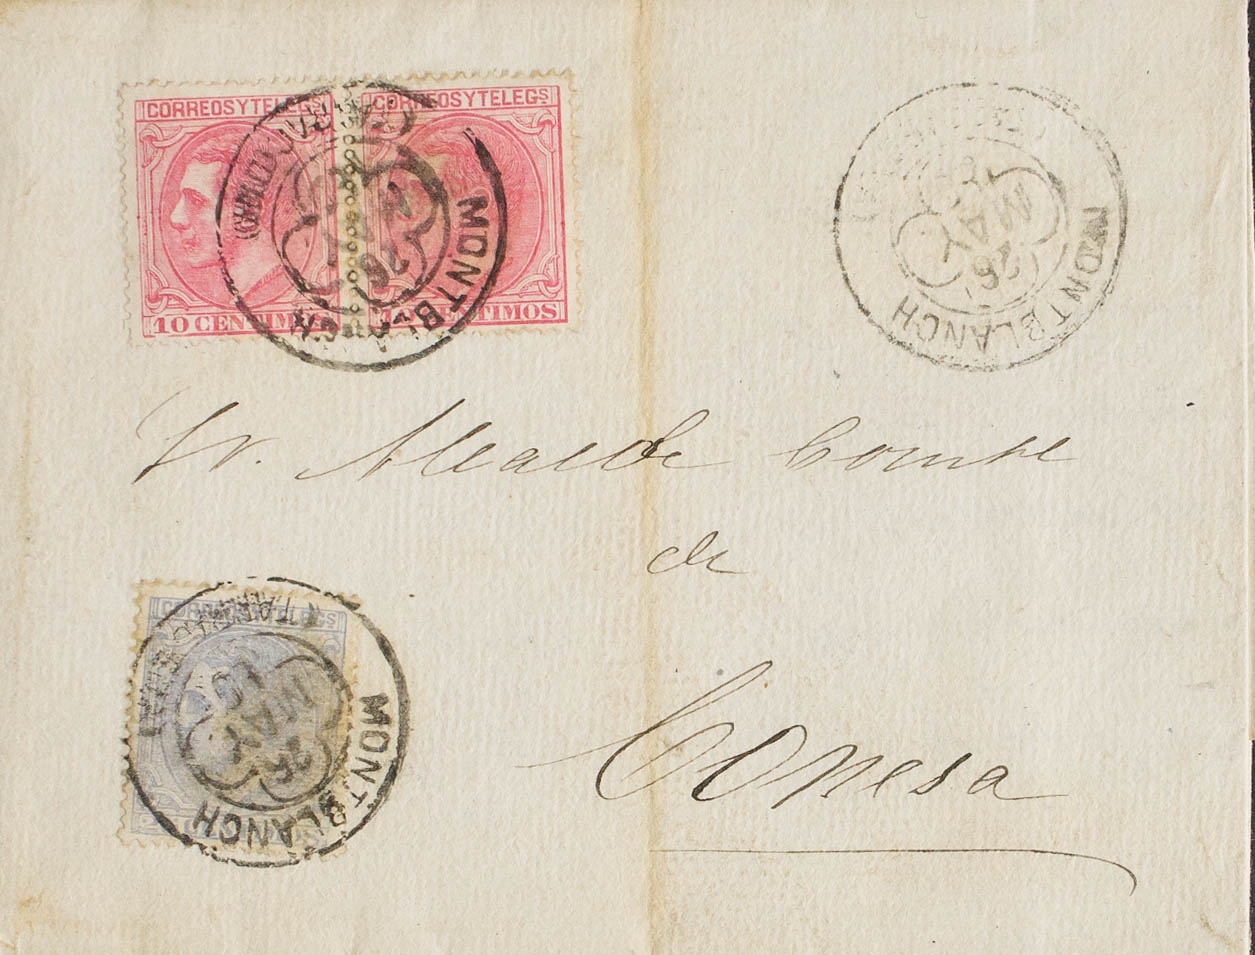 CORREOS Y TELEGS CORREOS Y TELEGS
10 CENTIMOS CENTIMOS
MONTBLANCH
26
MONTBLANCH
MAY
26
Sr. Alcalde Constl
de
Conesa
CORREOS Y TELEGS
MONTBLANCH
MAY
26